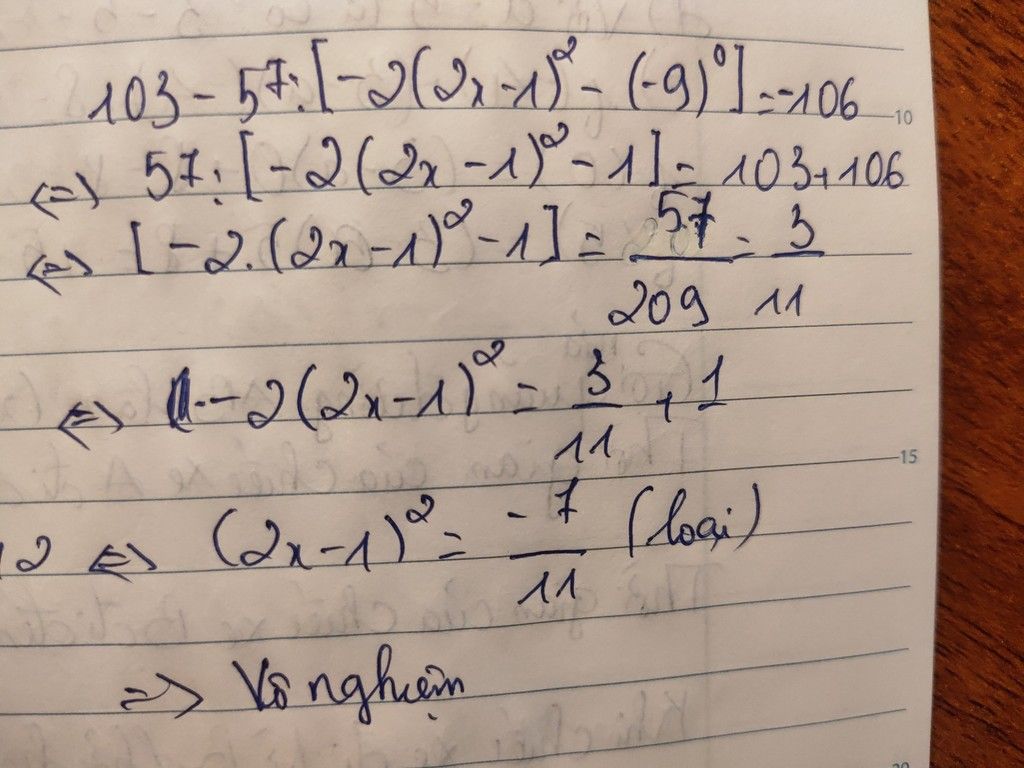 103 - 57 : [-2(2x-1)² - (-9)⁰] = -106
10
⇔ 57 : [-2(2x-1)² - 1] = 103 + 106
⇔ [-2.(2x-1)² - 1] = 57/209 = 3/11
⇔ -2(2x-1)² = 3/11 + 1
15
12 ⇔ (2x-1)² = -7/11 (loại)
=> Vô nghiệm
20